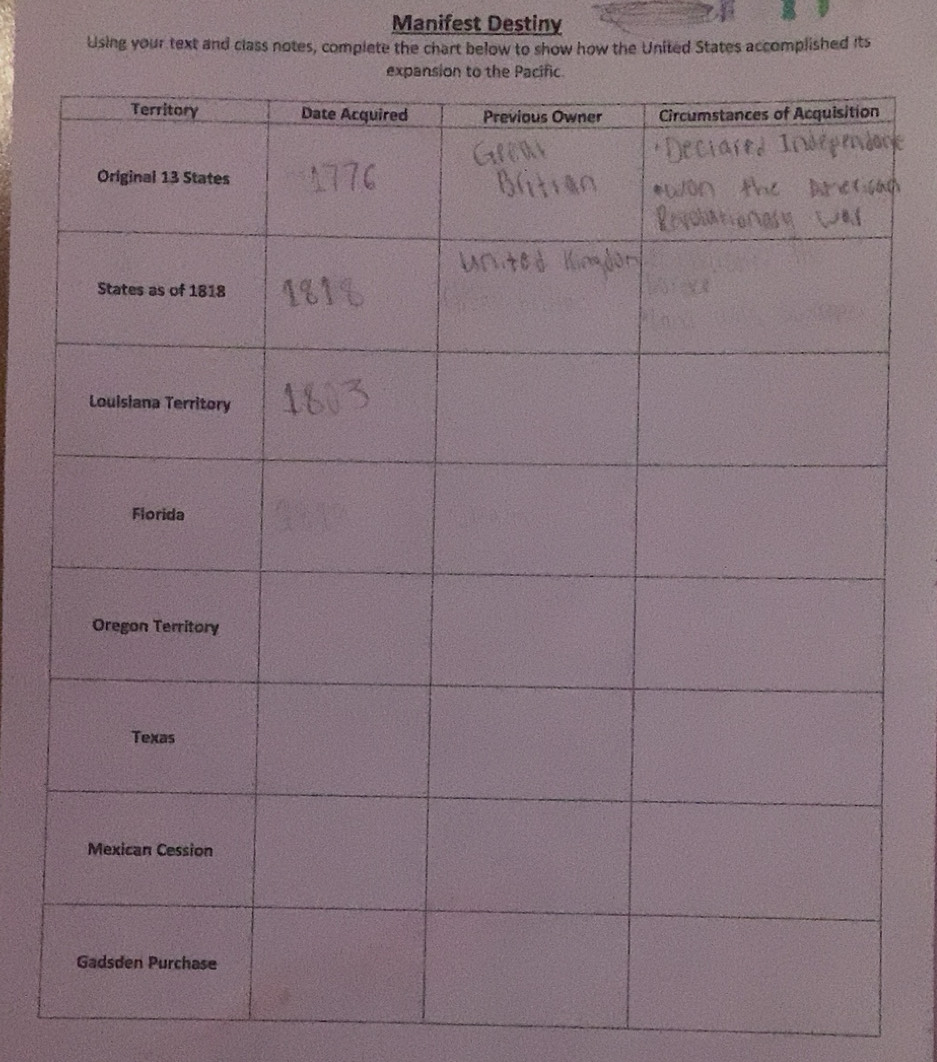 Manifest Destiny
Using your text and class notes, complete the chart below to show how the United States accomplished its
expansion to the Pacific.
Territory Date Acquired Previous Owner Circumstances of Acquisition
Original 13 States 1776 Great Britian • Declared Independence
• won the American
Revolutionary war
States as of 1818 1818 United Kingdom
Louisiana Territory 1803
Florida
Oregon Territory
Texas
Mexican Cession
Gadsden Purchase